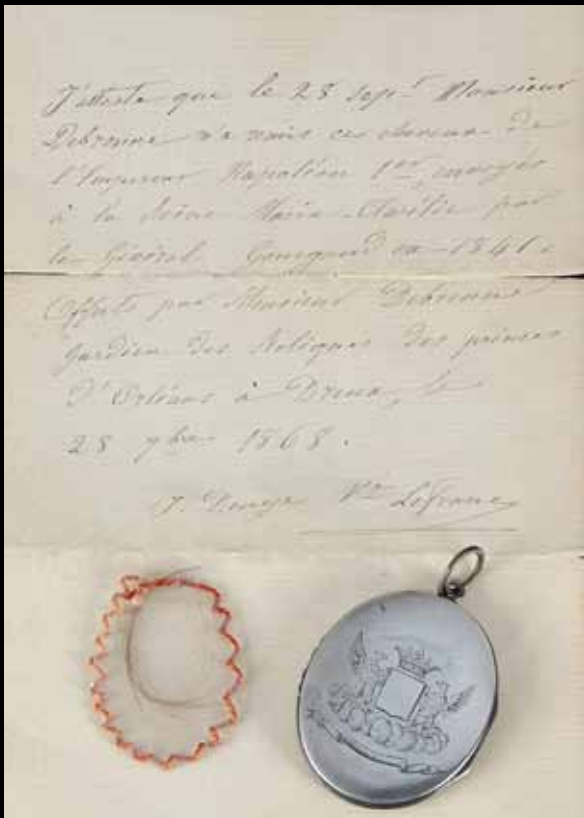 J'atteste que le 28 sept Monsieur
Debronne m'a remis ces cheveux de
l'Empereur Napoléon 1er envoyés
à la Reine Marie-Amélie par
le Général Gourgaud en 1841.
Offerts par Monsieur Debronne
gardien des Reliques des princes
D'Orléans à Dreux, le
28 7bre 1868.
Vve Lefranc